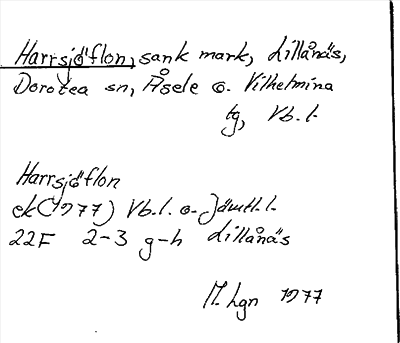 Harrsjöflon, sank mark, Lillånäs,
Dorotea sn, Åsele o. Vilhelmina
tg, Vb. l.
Harrsjöflon
ek (1977) Vb. l. o. Jämtl. l.
22F 2-3 g-h Lillånäs
M. Lgn 1977